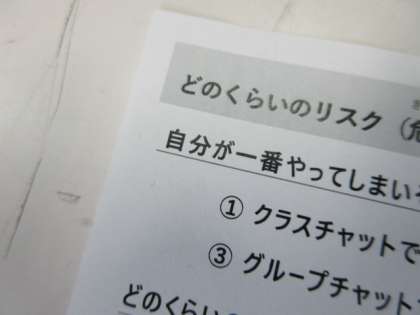 どのくらいのリスク（危
自分が一番やってしまい
① クラスチャットで
③ グループチャット
どのくらい